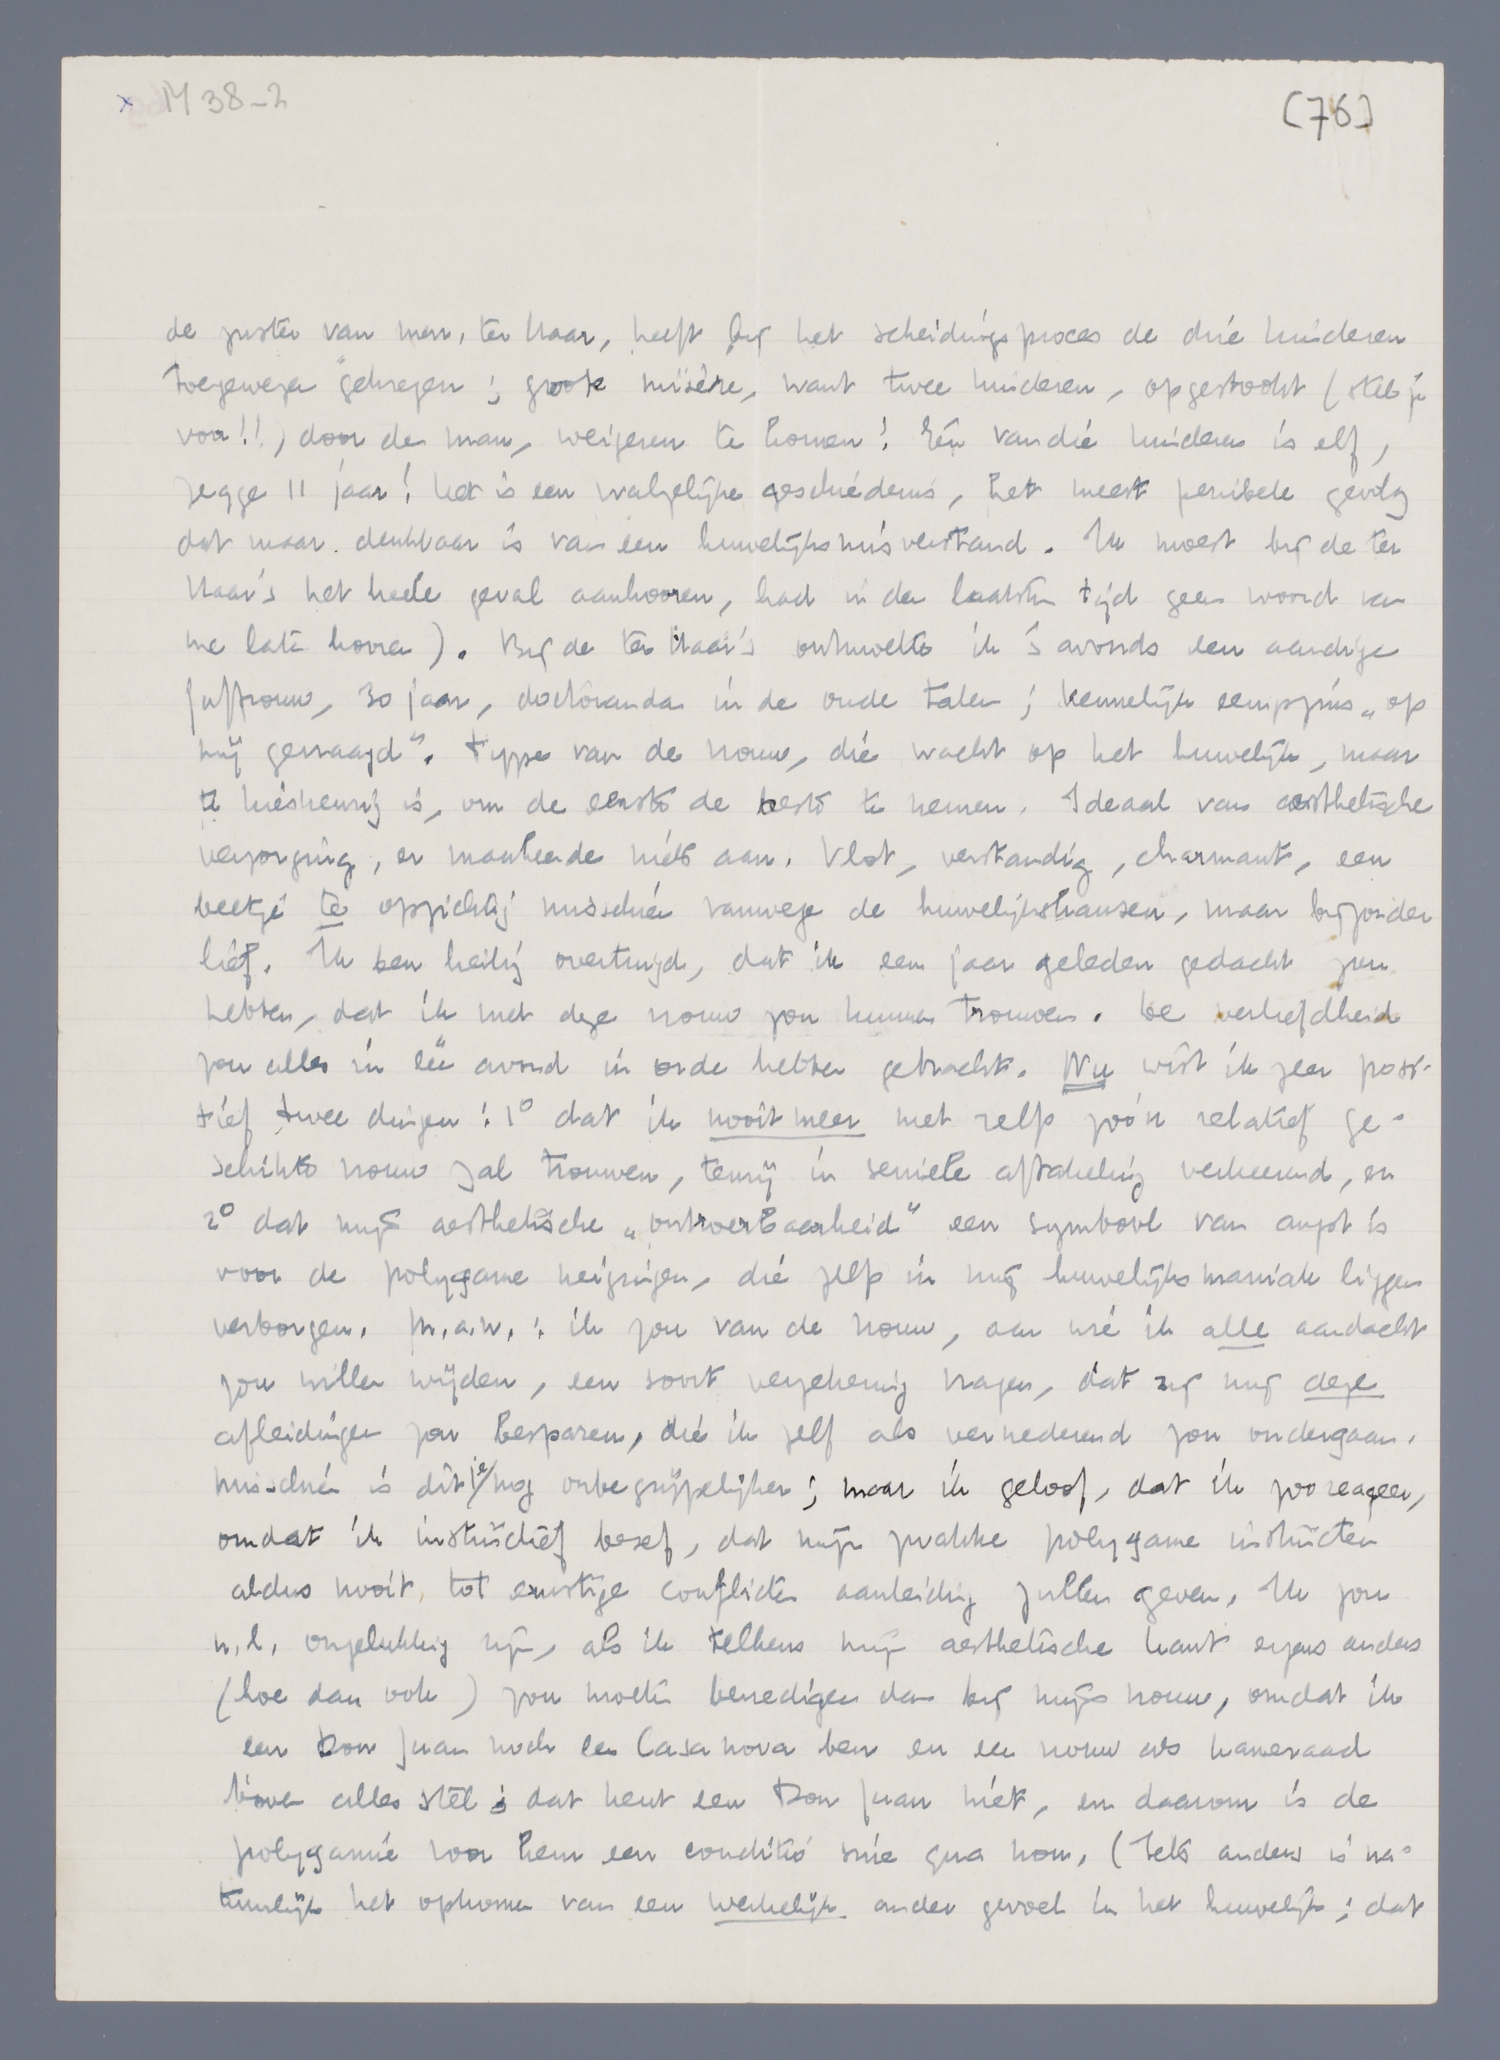 x M 38-2
[76]
de zuster van mevr. ter Haar, heeft bij het scheidingsproces de drie kinderen
toegewezen gekregen; groote misère, want twee kinderen, opgestookt (stel je
voor!!) door den man, weigeren te komen! Eén van die kinderen is elf,
zegge 11 jaar! Het is een walgelijke geschiedenis, het meest penibele gevolg
dat maar denkbaar is van een huwelijksmisverstand. Ik moest bij de ter
Haar's het heele geval aanhooren, had in den laatsten tijd geen woord van
me laten hooren). Bij de ter Haar's ontmoette ik 's avonds een aardige
juffrouw, 30 jaar, doctoranda in de oude talen; kennelijk eenigszins „op
mij gevraagd”. Type van de vrouw, die wacht op het huwelijk, maar
te kieskeurig is, om de eerste de beste te nemen. Ideaal van aesthetische
verzorging, er mankeerde niets aan. Vlot, verstandig, charmant, een
beetje te opzichtig misschien vanwege de huwelijkskansen, maar bijzonder
lief. Ik ben heilig overtuigd, dat ik een jaar geleden gedacht zou
hebben, dat ik met deze vrouw zou kunnen trouwen. De verliefdheid
zou alles in één avond in orde hebben gebracht. Nu wist ik zeer posi-
tief twee dingen: 1° dat ik nooit meer met zelfs zoo'n relatief ge-
schikte vrouw zal trouwen, tenzij in seniele aftakeling verkeerend, en
2° dat mijn aesthetische „ontroerbaarheid” een symbool van angst is
voor de polygame neigingen, die zelfs in mijn huwelijksmaniak liggen
verborgen. M.a.w.: ik zou van de vrouw, aan wie ik alle aandacht
zou willen wijden, een soort verzekering vragen, dat zij mij deze
afleidingen zou besparen, die ik zelf als vernederend zou ondergaan.
Misschien is dit je nog onbegrijpelijker; maar ik geloof, dat ik zoo reageer,
omdat ik instinctief besef, dat mijn zwakke polygame instincten
aldus nooit tot ernstige conflicten aanleiding zullen geven. Ik zou
n.l. ongelukkig zijn, als ik telkens mijn aesthetische kant ergens anders
(hoe dan ook) zou moeten bevredigen dan bij mijn vrouw, omdat ik
een Don Juan noch een Casanova ben en een vrouw als kameraad
boven alles stel; dat kent een Don Juan niet, en daarom is de
polygamie voor hem een conditio sine qua non. (Iets anders is na-
tuurlijk het opkomen van een werkelijk ander gevoel in het huwelijk; dat